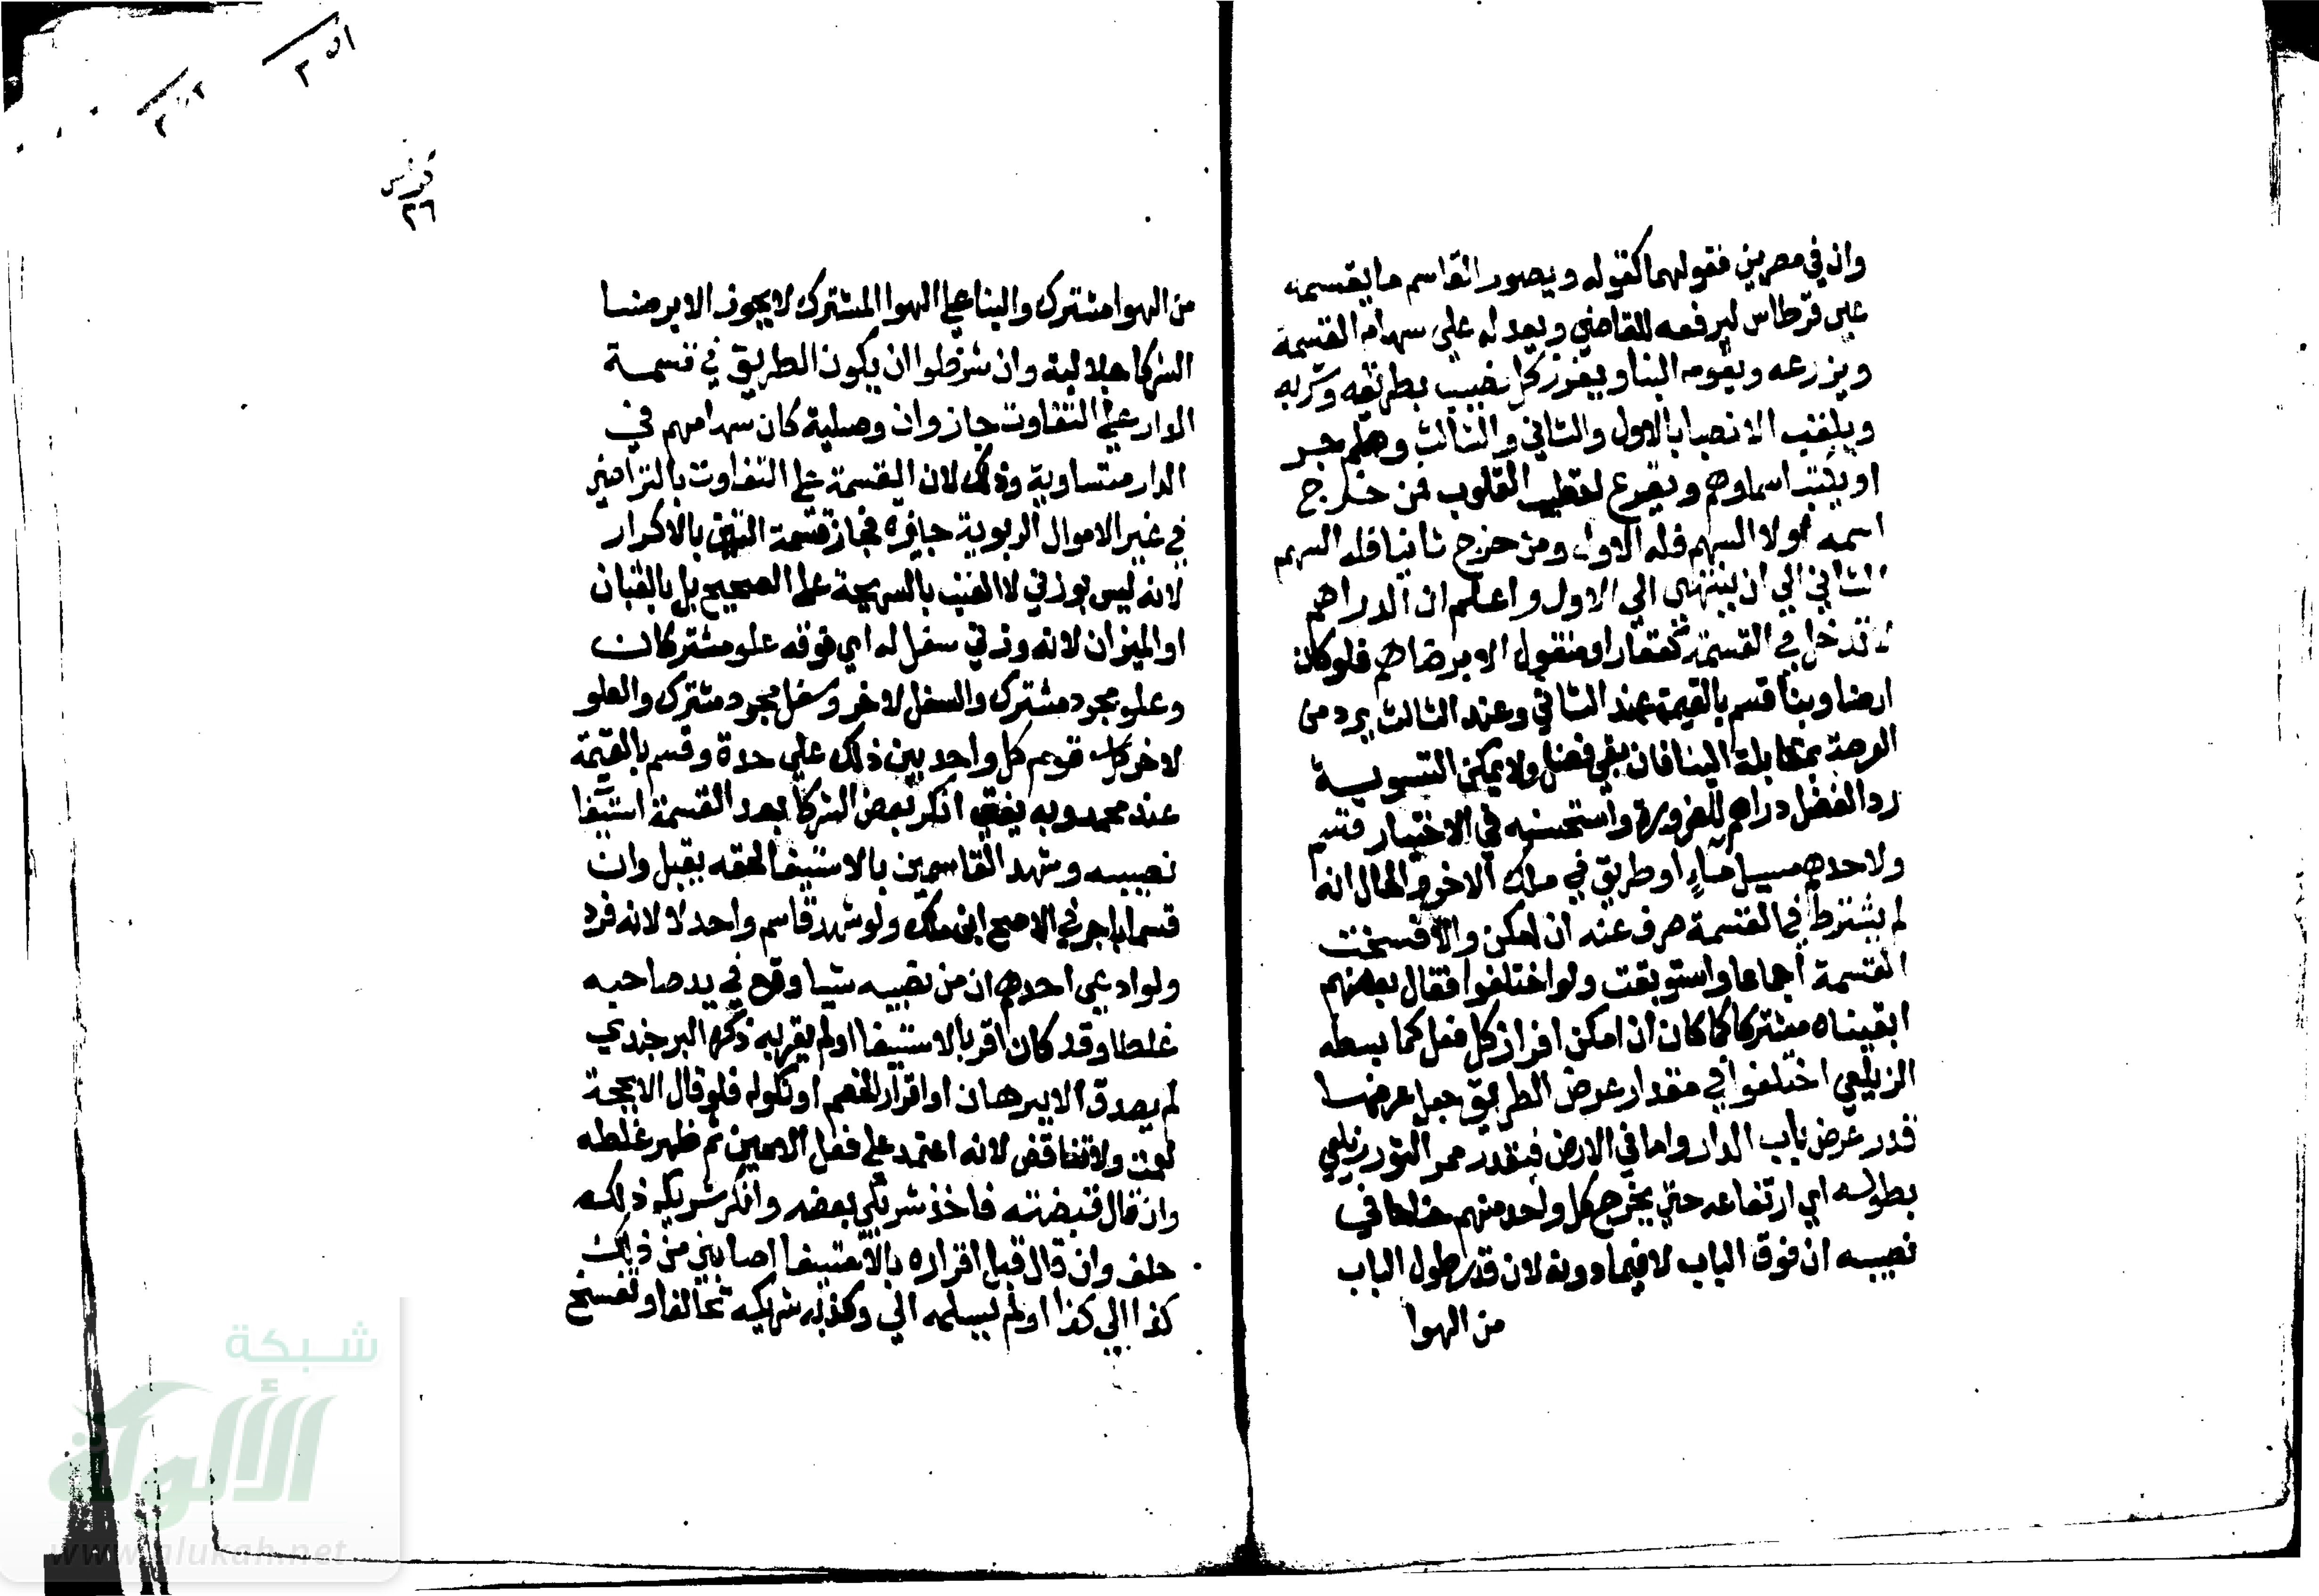 وان في مصرين فقولهما كقوله ويصور القاسم ما يقسمه
على قرطاس ليرفعه للقاضي ويعدله على سهام القسمة
ويزرعه ويقومه البنا ويفرز كل نصيب بطريقه وشربه
ويلقب الانصبا بالاول والثاني والثالث وهلم جر
او يكتب اسماوهم ويقرع لتطيب القلوب فمن خرج
اسمه اولا السهم فله الاول ومن خرج ثانيا فله السهم
الثاني الي ان ينتهي الي الاول واعلم ان الدراهم
لا تدخل في القسمة كعقار او منقول الا برضاهم فلو كان
ارضا وبنا قسم بالقيمة عند الثاني وعند الثالث يرد من
العرصة بمقابلة البنا فان بقي فضل ولا يمكن التسوية
رد الفضل دراهم للضرورة واستحسنه في الاختيار قسم
ولاحدهم مسيل ماء او طريق في ملك الاخر والحال انه
لم يشترط في القسمة صرف عنه ان امكن والا فسخت
القسمة اجماعا واستونفت ولو اختلفوا فقال بعضهم
ابقيناه مشتركا كما كان ان امكن افراز كل فعل كما بسطه
الزيلعي اختلفوا في مقدار عرض الطريق جعل عرضها
قدر عرض باب الدار واما في الارض فبقدر ممر الثور زيلعي
بطوله اي ارتفاعه حتي يخرج كل واحد منهم جناحا في
نصيبه ان فوق الباب لا فيما دونه لان قدر طول الباب
من الهوا
من الهوا مشترك والبنا علي الهوا المشترك لا يجوز الا برضا
الشركا جلالية وان شرطوا ان يكون الطريق في قسمة
الدار علي التفاوت جاز وان وصلية كان سهامهم في
الدار متساوية وذلك لان القسمة علي التفاوت بالتراضي
في غير الاموال الربوية جايزة فجاز قسمة التين بالاكرار
لانه ليس بوزني لا العنب بالسريجة علي الصحيح بل بالقبان
او الميزان لانه وزني سفل له اي فوقه علو مشتركان
وعلو مجرد مشترك والسفل لاخر وسفل مجرد مشترك والعلو
لاخر قوم كل واحد بين ذلك علي حدة وقسم بالقيمة
عند محمد وبه يفتي انكر بعض الشركا بعد القسمة استيفا
نصيبه وشهد القاسمين بالاستيفا لحقه يقبل وان
قسما باجر في الاصح ابن ملك ولو شهد قاسم واحد لا لانه فرد
ولو ادعي احدهم ان من نصيبه شيا وقع في يد صاحبه
غلطا وقد كان اقر بالاستيفا او لم يقر به ذكره البرجندي
لم يصدق الا ببرهان او اقرار الخصم او نكوله فلو قال الا بحجة
لعمت ولا تناقض لانه اعتمد علي فعل الامين ثم ظهر غلطه
وان قال قبضته فاخذ شريكي بعضه وانكر شريكه ذلك
حلف وان قال قبل اقراره بالاستيفا اصابني من ذلك
كذا الي كذا او لم يسلمه الي وكذبه شريكه تحالفا وتفسخ
٢٦
شبكة
الألوكة
www.alukah.net